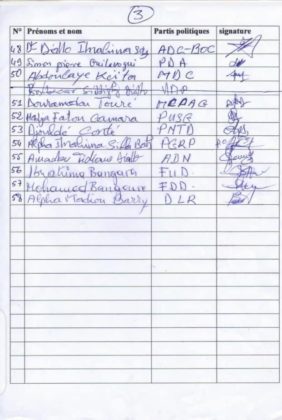 3
N° Prénoms et nom Partis politiques signature
48 Dr Diallo Ibrahima Sory ADC-BOC
49 Simon pierre PDA
50 Abdoulaye Keita MDC
Boubacar Siddighy Diallo UDP
51 Bouramadou Touré MCPAG
52 Fatou Camara PUSG
53 Dioubdé Conté PNTD
54 Alpha Ibrahima Silla Bah PGRP
55 Amadou Tidiane Diallo ADN
56 Ibrahima Bangoura FUD
57 Mohamed Bangoura FDD
58 Alpha Madiou Barry DLR